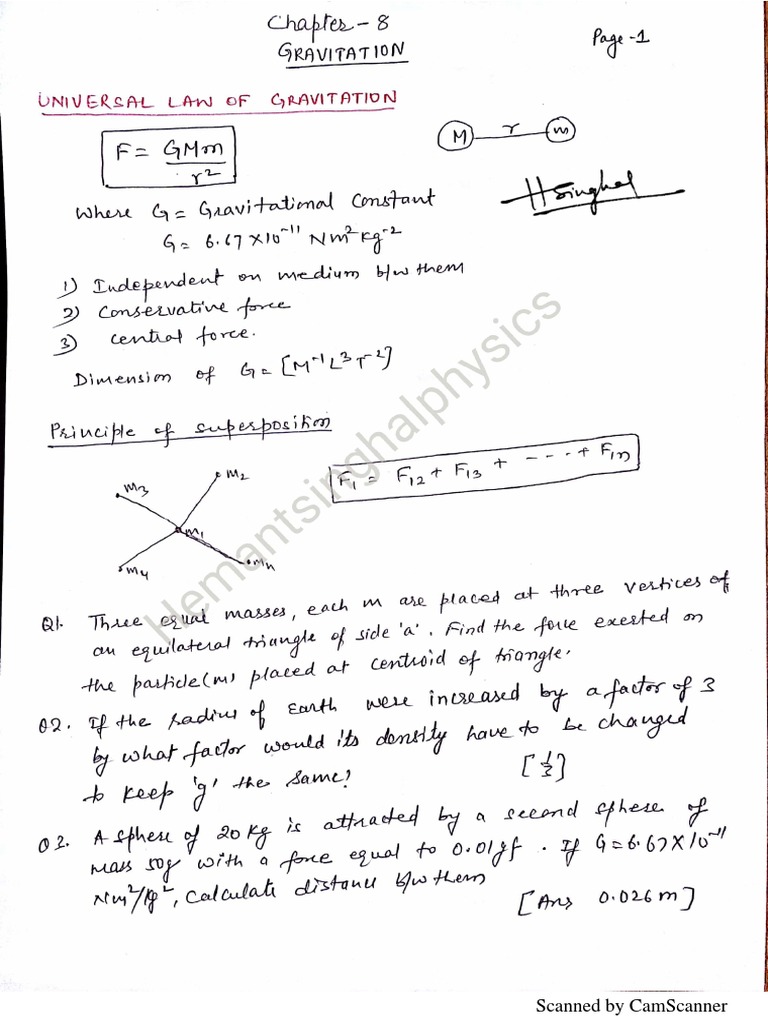 Chapter - 8
GRAVITATION
Page - 1
UNIVERSAL LAW OF GRAVITATION
F = GMm
r²
M r m
HSinghal
Where G = Gravitational Constant
G = 6.67 X 10⁻¹¹ Nm²Kg⁻²
1) Independent on medium b/w them
2) Conservative force
3) Central force.
Dimension of G = [M⁻¹L³T⁻²]
Principle of superposition
F₁ = F₁₂ + F₁₃ + - - - . + F₁ₙ
m₃ m₂
m₁
m₄ mₙ
Hemantsinghalphysics
Q1. Three equal masses, each m are placed at three vertices of
an equilateral triangle of side 'a'. Find the force exerted on
the particle(m) placed at centroid of triangle.
Q2. If the radius of Earth were increased by a factor of 3
by what factor would its density have to be changed
to keep 'g' the same? [1/3]
Q3. A sphere of 20 Kg is attracted by a second sphere of
mass 50g with a force equal to 0.01gf. If G = 6.67 X 10⁻¹¹
Nm²/Kg², Calculate distance b/w them
[Ans 0.026 m]
Scanned by CamScanner